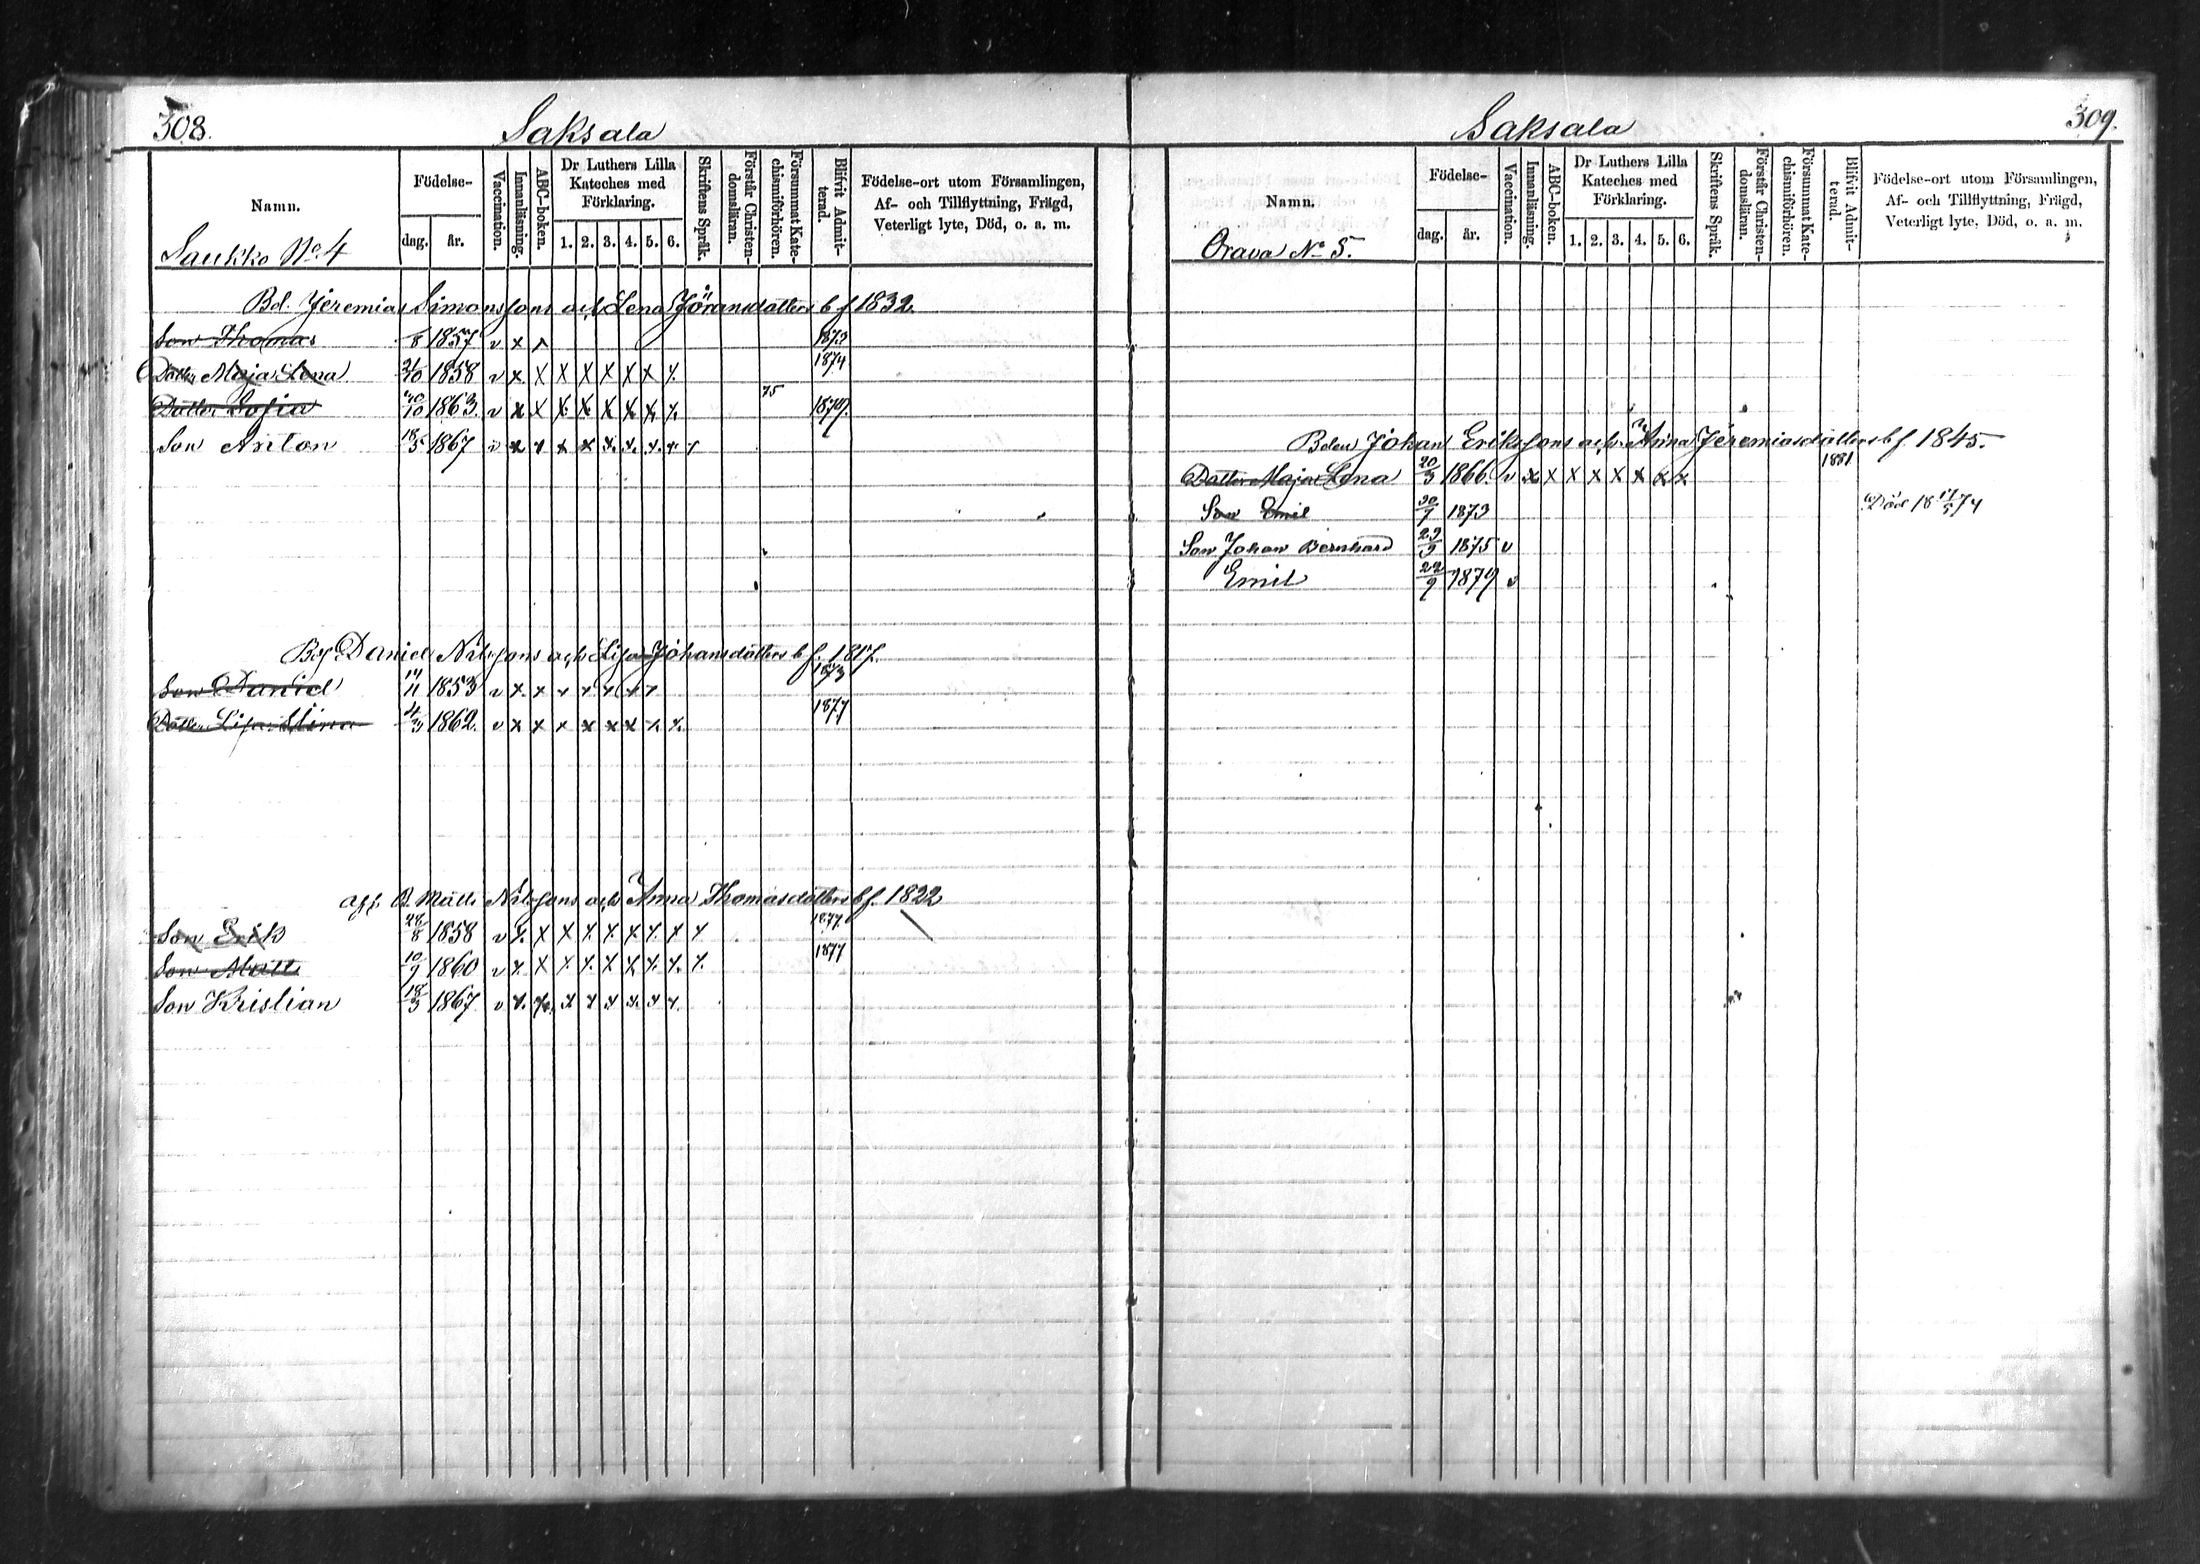 308.
Saksala
Namn.
Födelse-
dag. år.
Vaccination.
Innanläsning.
ABC-boken.
Dr Luthers Lilla
Kateches med
Förklaring.
1. 2. 3. 4. 5. 6.
Skriftens Språk.
Förstår Christen-
domsläran.
Försummat Kate-
chismiförhören.
Blifvit Admit-
terad.
Födelse-ort utom Församlingen,
Af- och Tillflyttning, Frägd,
Veterligt lyte, Död, o. a. m.
Saukko No 4
Bd. Jeremias Simonssons och Lena Jöransdotters b f 1832.
Son Thomas 1857 v x 1873
Dotter Maja Lena 1858 v x x x x x x x x 1874
75
Dotter Sofia 30/10 1863. v x x x x x x x x 1879.
Son Anton 18/5 1867 v x x x x x x x x x
Daniel Nilssons och Lisa Johansdotters b f. 1817.
Son Daniel 1853 v x x x x x x x 1873
Dotter Lisa Stina 1862. v x x x x x x x x 1877
Matts Nilssons och Anna Thomasdotters b f. 1822
Son Erik 28/8 1858 v x x x x x x x x x 1877
Son Matts 10/9 1860 v x x x x x x x x x 1877
Son Kristian 18/3 1867 v x x x x x x x x
309.
Saksala
Namn.
Födelse-
dag. år.
Vaccination.
Innanläsning.
ABC-boken.
Dr Luthers Lilla
Kateches med
Förklaring.
1. 2. 3. 4. 5. 6.
Skriftens Språk.
Förstår Christen-
domsläran.
Försummat Kate-
chismiförhören.
Blifvit Admit-
terad.
Födelse-ort utom Församlingen,
Af- och Tillflyttning, Frägd,
Veterligt lyte, Död, o. a. m.
Orava No 5.
Bden Johan Erikssons och Anna Jeremiasdotters b f. 1845.
Dotter Maja Lena 20/3 1866. v x x x x x x x x 1881
Son Emil 30/7 1873 Död 18 17/5 74
Son Johan Bernhard 1875 v
Emil 22/9 1879 v